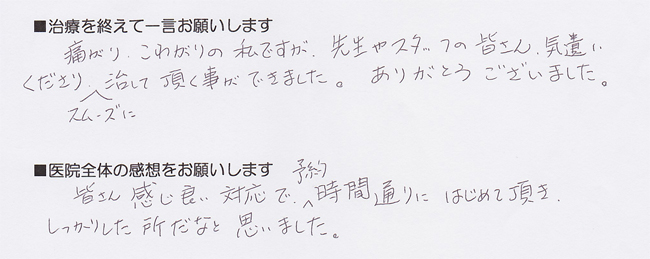 ■治療を終えて一言お願いします
痛がり、こわがりの私ですが、先生やスタッフの皆さん、気遣い
くださり、治して頂く事ができました。ありがとうございました。
スムーズに
■医院全体の感想をお願いします
予約
皆さん感じ良い対応で、時間通りにはじめて頂き、
しっかりした所だなと思いました。